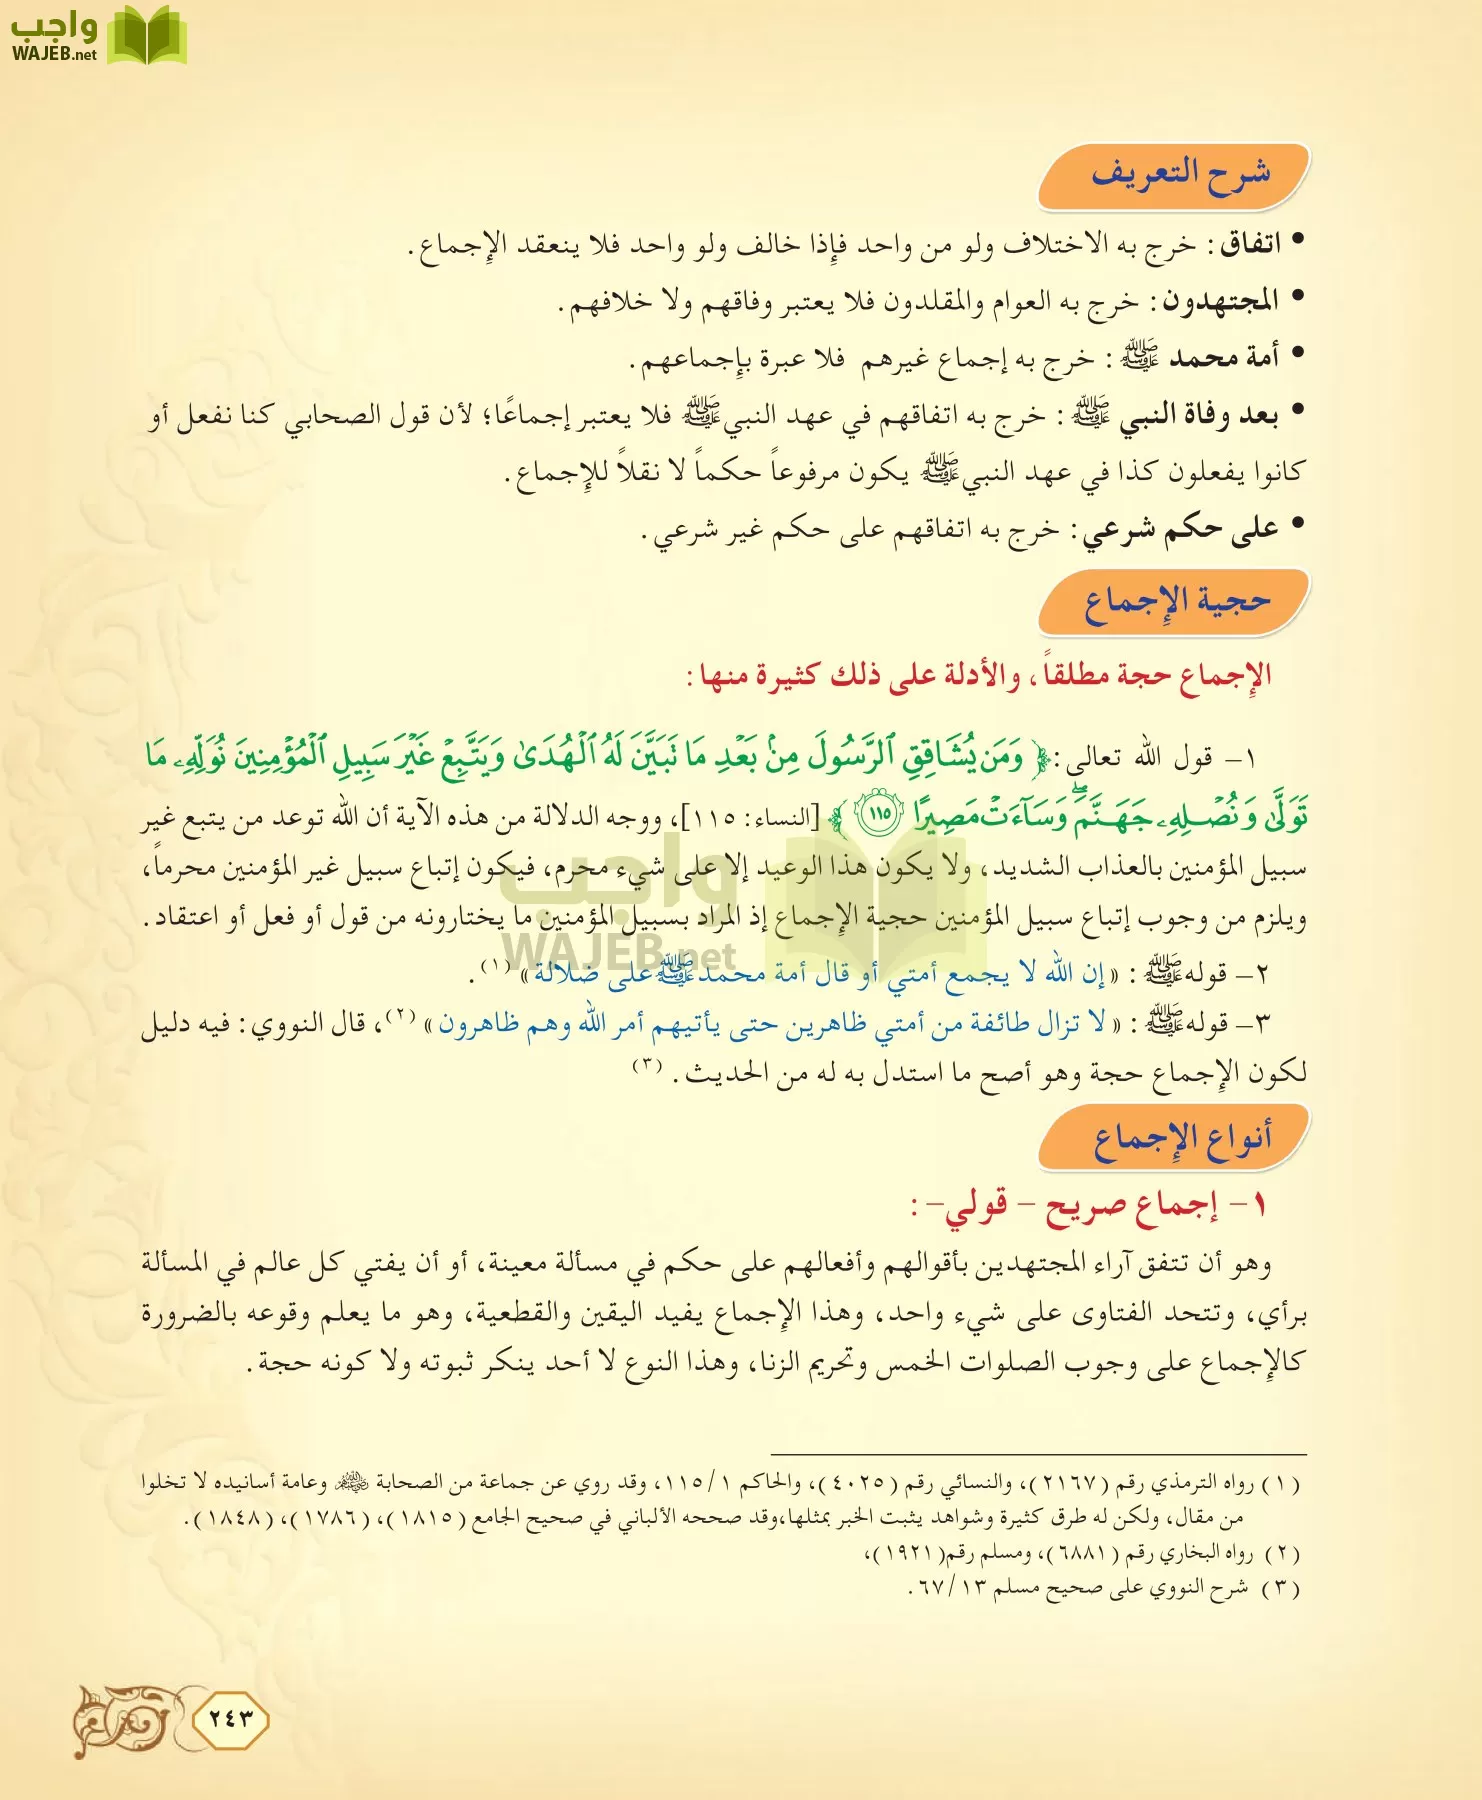 واجب
WAJEB.net
شرح التعريف
• اتفاق: خرج به الاختلاف ولو من واحد فإذا خالف ولو واحد فلا ينعقد الإجماع.
• المجتهدون: خرج به العوام والمقلدون فلا يعتبر وفاقهم ولا خلافهم.
• أمة محمد ﷺ: خرج به إجماع غيرهم فلا عبرة بإجماعهم.
• بعد وفاة النبي ﷺ: خرج به اتفاقهم في عهد النبي ﷺ فلا يعتبر إجماعًا؛ لأن قول الصحابي كنا نفعل أو
كانوا يفعلون كذا في عهد النبي ﷺ يكون مرفوعاً حكماً لا نقلاً للإجماع.
• على حكم شرعي: خرج به اتفاقهم على حكم غير شرعي.
حجية الإجماع
الإجماع حجة مطلقاً، والأدلة على ذلك كثيرة منها:
١- قول الله تعالى: ﴿ وَمَن يُشَاقِقِ ٱلرَّسُولَ مِنۢ بَعْدِ مَا تَبَيَّنَ لَهُ ٱلْهُدَىٰ وَيَتَّبِعْ غَيْرَ سَبِيلِ ٱلْمُؤْمِنِينَ نُوَلِّهِۦ مَا
تَوَلَّىٰ وَنُصْلِهِۦ جَهَنَّمَ ۖ وَسَآءَتْ مَصِيرًا ١١٥ ﴾ [النساء: ١١٥]، ووجه الدلالة من هذه الآية أن الله توعد من يتبع غير
سبيل المؤمنين بالعذاب الشديد، ولا يكون هذا الوعيد إلا على شيء محرم، فيكون إتباع سبيل غير المؤمنين محرماً،
ويلزم من وجوب إتباع سبيل المؤمنين حجية الإجماع إذ المراد بسبيل المؤمنين ما يختارونه من قول أو فعل أو اعتقاد.
واجب
WAJEB.net
٢- قوله ﷺ: «إن الله لا يجمع أمتي أو قال أمة محمد ﷺ على ضلالة» (١).
٣- قوله ﷺ: «لا تزال طائفة من أمتي ظاهرين حتى يأتيهم أمر الله وهم ظاهرون» (٢)، قال النووي: فيه دليل
لكون الإجماع حجة وهو أصح ما استدل به له من الحديث. (٣)
أنواع الإجماع
١- إجماع صريح - قولي-:
وهو أن تتفق آراء المجتهدين بأقوالهم وأفعالهم على حكم في مسألة معينة، أو أن يفتي كل عالم في المسألة
برأي، وتتحد الفتاوى على شيء واحد، وهذا الإجماع يفيد اليقين والقطعية، وهو ما يعلم وقوعه بالضرورة
كالإجماع على وجوب الصلوات الخمس وتحريم الزنا، وهذا النوع لا أحد ينكر ثبوته ولا كونه حجة.
(١) رواه الترمذي رقم (٢١٦٧)، والنسائي رقم (٤٠٢٥)، والحاكم ١/ ١١٥، وقد روي عن جماعة من الصحابة ﷺ وعامة أسانيده لا تخلوا
من مقال، ولكن له طرق كثيرة وشواهد يثبت الخبر بمثلها،وقد صححه الألباني في صحيح الجامع (١٨١٥)، (١٧٨٦)، (١٨٤٨).
(٢) رواه البخاري رقم (٦٨٨١)، ومسلم رقم(١٩٢١)،
(٣) شرح النووي على صحيح مسلم ١٣/ ٦٧.
٢٤٣